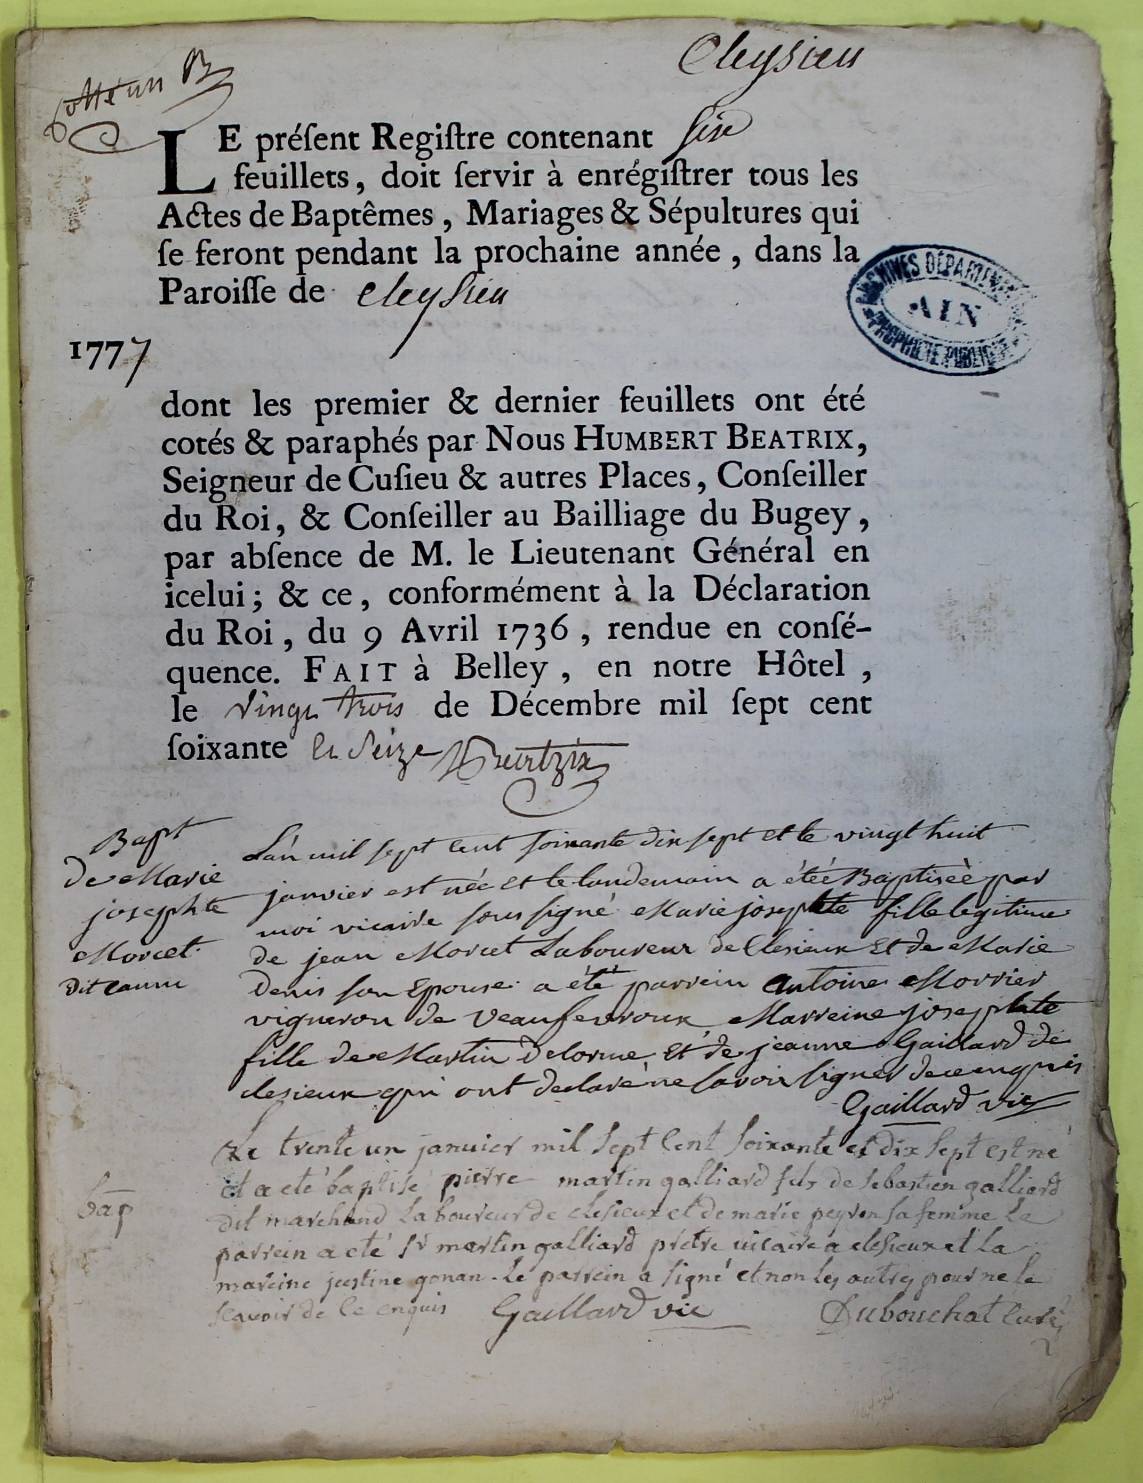 Cleysieu
B
LE préſent Regiſtre contenant six
feuillets, doit ſervir à enrégiſtrer tous les
Actes de Baptêmes, Mariages & Sépultures qui
ſe feront pendant la prochaine année, dans la
Paroiſſe de Cleysieu
ARCHIVES DÉPARTEMENTALES
AIN
PROPRIÉTÉ PUBLIQUE
1777
dont les premier & dernier feuillets ont été
cotés & paraphés par Nous HUMBERT BEATRIX,
Seigneur de Cuſieu & autres Places, Conſeiller
du Roi, & Conſeiller au Bailliage du Bugey,
par abſence de M. le Lieutenant Général en
icelui; & ce, conformément à la Déclaration
du Roi, du 9 Avril 1736, rendue en conſé-
quence. FAIT à Belley, en notre Hôtel,
le vingt trois de Décembre mil ſept cent
ſoixante et seize
Bapt
de Marie
josephte
Morcet
dit
L'an mil sept cent soixante dix sept et le vingt huit
janvier est née et le landemain a étée Baptiseè par
moi vicaire sous signé Marie josephte fille legitime
de jean Morcet Laboureur de Clesieux Et de Marie
Denis son Epouse a été parrein antoine Morrier
vigneron de Marreine josephte
fille de Martin Delorme Et de jeanne Gaillard de
clesieux qui ont declaré ne savoir signer de ce enquis
Gaillard vic
bap
Le trente un janvier mil sept cent soixante et dix sept est né
et a eté baptisé pierre martin galliard fils de sebastien galliard
dit marchand Laboureur de clesieux et de marie peyron sa femme Le
parrein a eté sr martin galliard pretre vicaire a clesieux et la
mareine justine gonan. Le parrein a signé et non les autres pour ne le
scavoir de ce enquis Gaillard vic Dubouchat curé